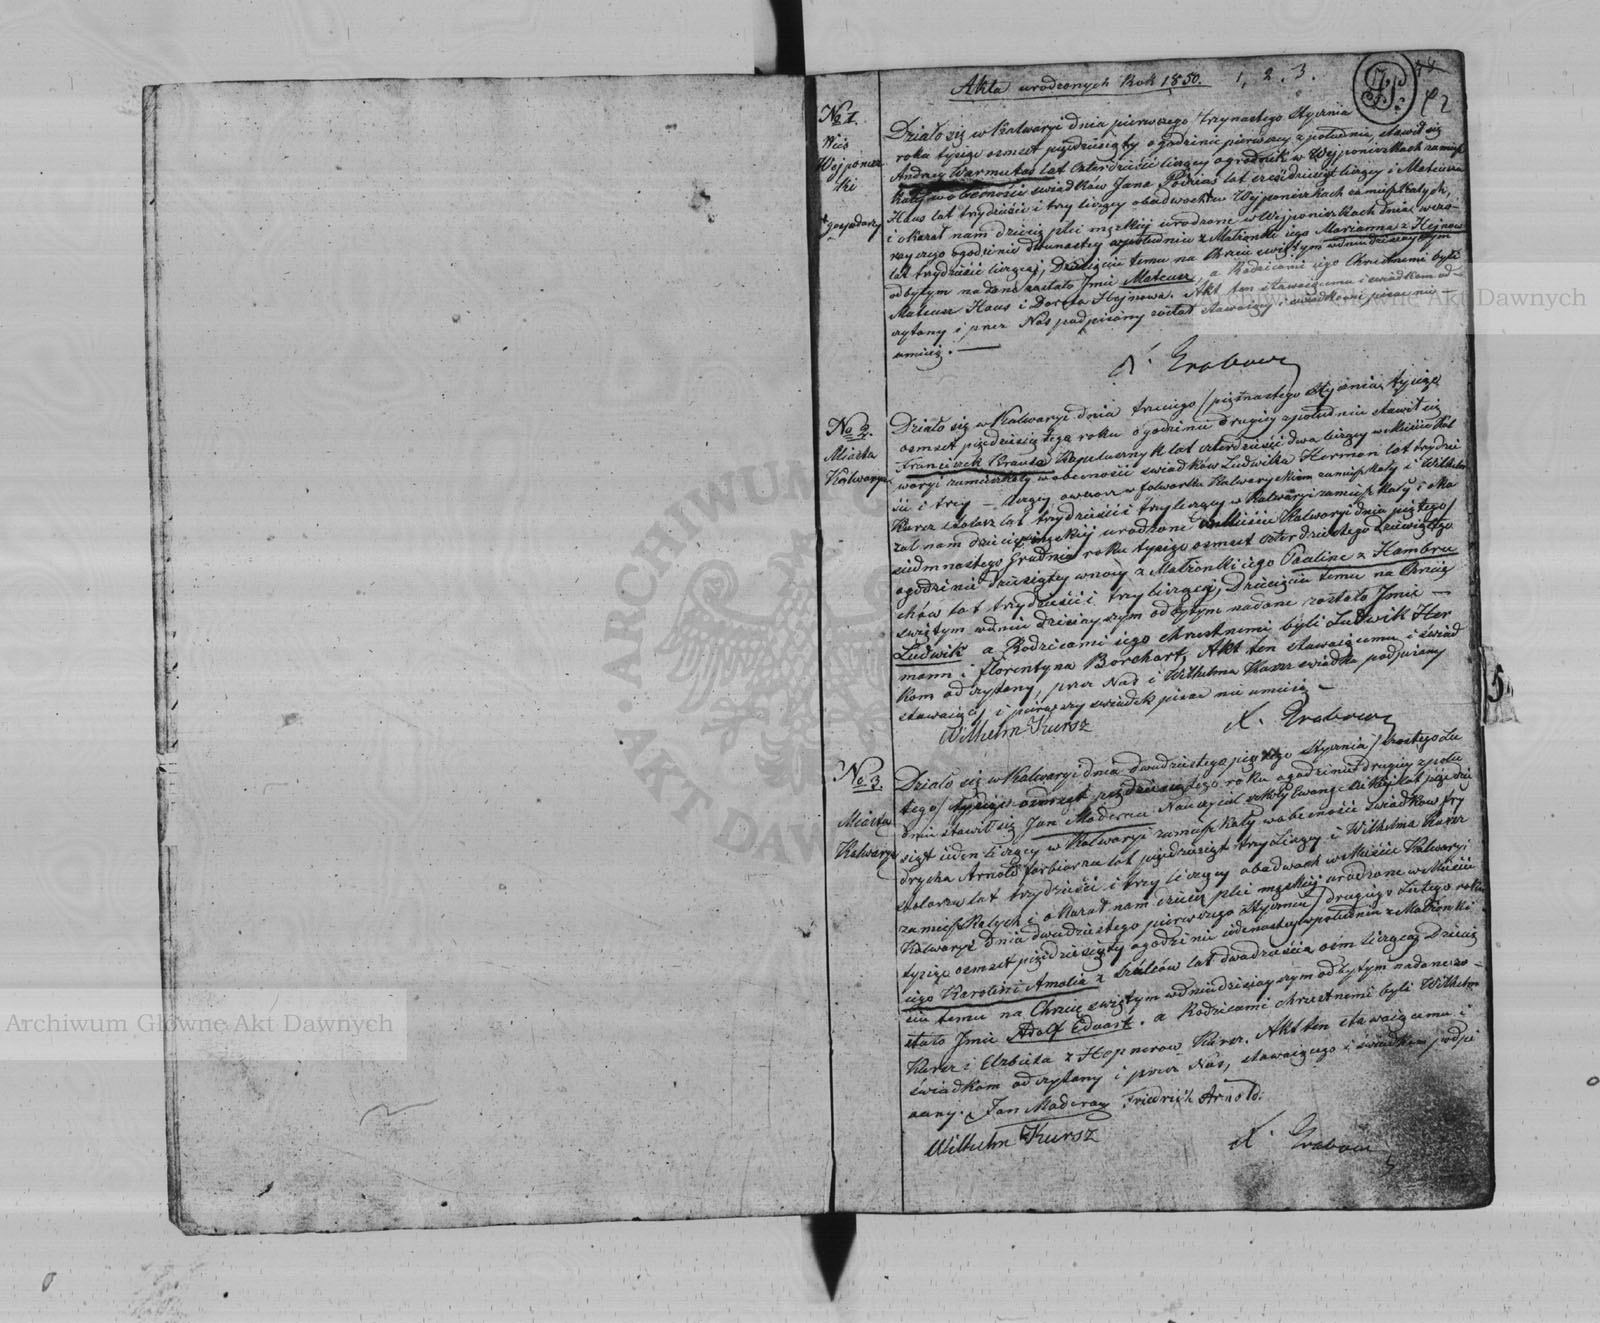 Akta urodzonych Rok 1850. 1, 2. 3.
No 1.
Wieś
Wejponisz-
ki
Działo się w Kalwaryi dnia pierwszego / trzynastego Stycznia
roku tysiąc osmset pięćdziesiąty o godzinie pierwszey z południa, stawił się
Andrzey Warmutas lat czterdzieści liczący ogrodnik w Wejponiszkach zamiesz
kały w obecności świadków Jana lat sześćdziesiąt liczący i Mateusza
Haus lat trzydzieści i trzy liczący obadwoch w Wejponiszkach zamieszkałych,
* gospodarzy
i okazał nam dziecię płci męzkiej urodzone w Wejponiszkach dnia wczo-
rayszego o godzinie dwunastey z południa z Małżonki iego Marianna z Hejnow
lat trzydzieści liczącej, Dziecięciu temu na Chrzcie świętym w dniu dzisieyszym
odbytym nadane zostało Imie Mateusz, a Rodzicami iego Chrzestnemi byli
Mateusz Haus i Dorota Hejnowa. Akt ten stawaiącemu i świadkom od-
czytany i przez Nas podpisany został stawaiący i świadkowie pisać nie
umieią.
X. Grabow
No 2.
Miasto
Kalwarya
Działo się w Kalwaryi dnia trzeciego / piętnastego Stycznia, tysiąc
osmset pięćdziesiątego roku o godzinie drugiey z południa stawił się
Franciszek Brauta Kapelusznyk lat czterdzieści dwa liczący w Mieście Kal
waryi zamieszkały w obecności świadków Ludwika Herman lat trzydzie
ści i trzy liczący w folwarku Kalwaryskiem zamieszkały i Wilhelm
Kursz stolarz lat trzydzieści i trzy liczący w Kalwaryi zamieszkały, i oka
zał nam dziecię męzkiej urodzone w Mieście Kalwaryi dnia piątego /
siedmnastego Grudnia roku tysiąc osmset czterdziestego dziewiątego
o godzinie dziesiątey w nocy z Małżonki iego Pauline z Hambru
chów lat trzydzieści i trzy liczącej, Dziecięciu temu na Chrzcie
świętym w dniu dzisieyszym odbytym nadane zostało Imie
Ludwik a Rodzicami iego chrzestnemi byli Ludwik Her
mann i Florentyna Borchart, Akt ten stawaiącemu i świad
kom odczytany, przez Nas i Wilhelma Kursz świadka podpisany
stawaiący i pierwszy świadek pisac nie umieią
Wilhelm Kursz X. Grabow
No 3.
Miasto
Kalwarya
Działo się w Kalwaryi dnia dwudziestego piątego Stycznia / szostego Lu
tego / tysiąc osmset pięćdziesiątego roku o godzinie drugiey z połu
dnia stawił się Jan Maderau Nauczyciel szkoły Ewangelickiej lat pięćdzie
siąt ieden liczący w Kalwaryi zamieszkały w obecności świadkow Fry
drycha Arnold farbiarza lat pięćdziesiąt trzy liczący i Wilhelma Kursz
stolarza lat trzydzieści i trzy liczący obadwoch w Mieście Kalwaryi
zamieszkałych i okazał nam dziecię płci męzkiej urodzone w Mieście
Kalwaryi dnia dwudziestego pierwszego Stycznia / drugiego Lutego roku
tysiąc osmset pięćdziesiąty o godzinie iedenastey z południa z Małżonki
iego Karolini Amalia z Szulców lat dwadzieścia osm liczącej Dziecię
ciu temu na Chrzcie świętym w dniu dzisieyszym odbytym nadane zo-
stało Imie Adolf Eduart, a Rodzicami chrzestnemi byli Wilhelm
Kursz i Elzbieta z Hepnerow Kursz. Akt ten stawaiącemu i
świadkom odczytany i przez Nas, stawaiącego i świadkow podpi
sany. Jan Maderau Friedrich Arnold.
Wilhelm Kursz X. Grabow
ARCHIWUM GŁÓWNE AKT DAWNYCH
Archiwum Główne Akt Dawnych
Archiwum Główne Akt Dawnych